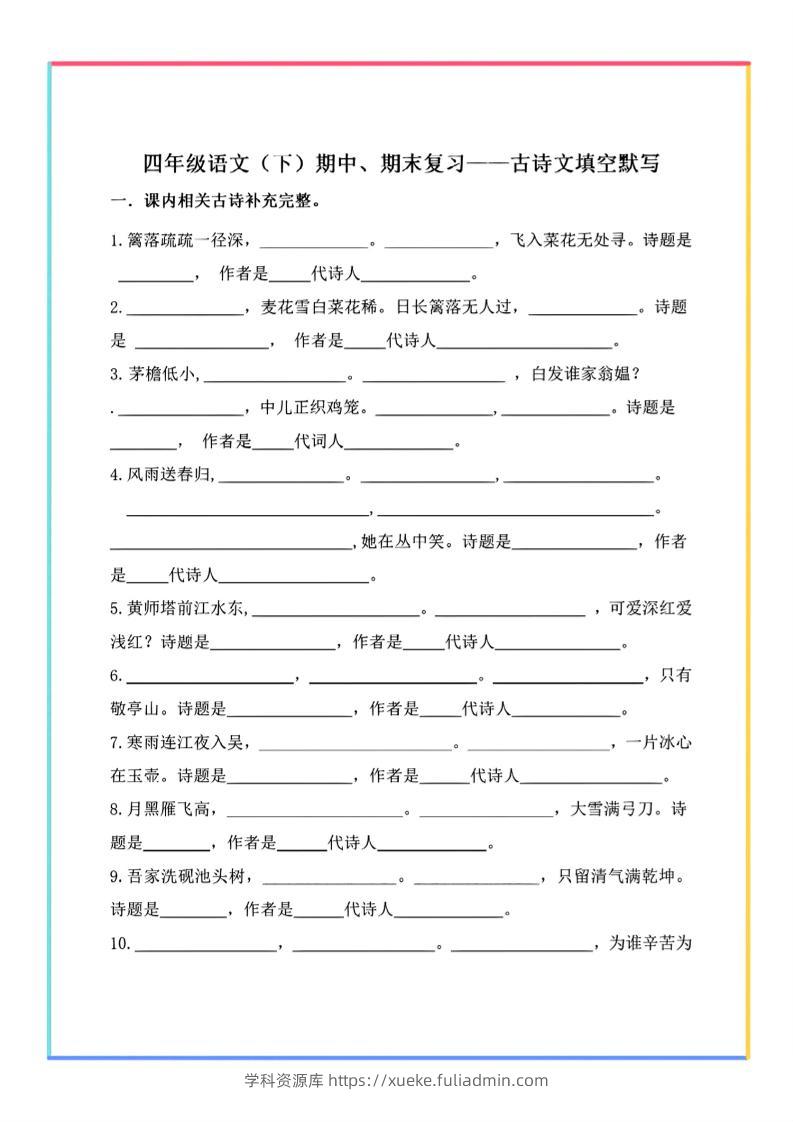 四年级语文（下）期中、期末复习——古诗文填空默写
一．课内相关古诗补充完整。
1.篱落疏疏一径深，_____________。_____________，飞入菜花无处寻。诗题是
_________， 作者是_____代诗人_____________。
2.______________，麦花雪白菜花稀。日长篱落无人过，_____________。诗题
是 ________________， 作者是_____代诗人_____________________。
3. 茅檐低小,_________________。_________________ ，白发谁家翁媪？
._______________，中儿正织鸡笼。______________,_____________。诗题是
________， 作者是_____代词人_____________。
4.风雨送春归,_______________。________________,__________________。
_____________________________,_________________________________。
_____________________________,她在丛中笑。诗题是_______________，作者
是_____代诗人__________________。
5.黄师塔前江水东,____________________。__________________ ，可爱深红爱
浅红？诗题是_______________，作者是_____代诗人_______________。
6.____________________，____________________。__________________，只有
敬亭山。诗题是_______________，作者是_____代诗人_____________。
7.寒雨连江夜入吴，_______________________。_________________，一片冰心
在玉壶。诗题是_______________，作者是______代诗人_________________。
8.月黑雁飞高，_____________________。________________，大雪满弓刀。诗
题是________，作者是______代诗人_____________。
9.吾家洗砚池头树，________________。_______________，只留清气满乾坤。
诗题是________，作者是______代诗人_____________。
10._________________，_________________。_________________，为谁辛苦为
学科资源库 https://xueke.fuliadmin.com